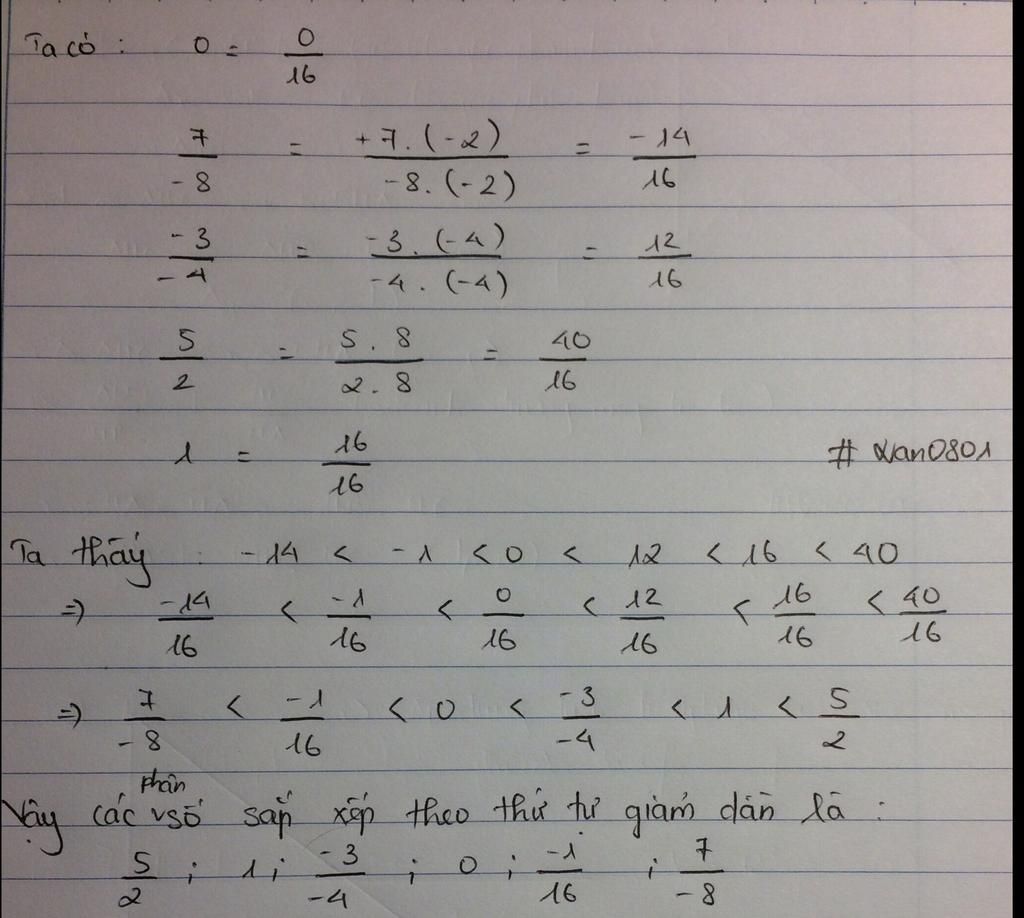 Ta có : 0 = 0/16
7/-8 = +7.(-2)/-8.(-2) = -14/16
-3/-4 = -3.(-4)/-4.(-4) = 12/16
5/2 = 5.8/2.8 = 40/16
1 = 16/16 # Xan0801
Ta thấy : -14 < -1 < 0 < 12 < 16 < 40
=) -14/16 < -1/16 < 0/16 < 12/16 < 16/16 < 40/16
=) 7/-8 < -1/16 < 0 < -3/-4 < 1 < 5/2
Vậy các phân số sắp xếp theo thứ tự giảm dần là :
5/2 ; 1 ; -3/-4 ; 0 ; -1/16 ; 7/-8